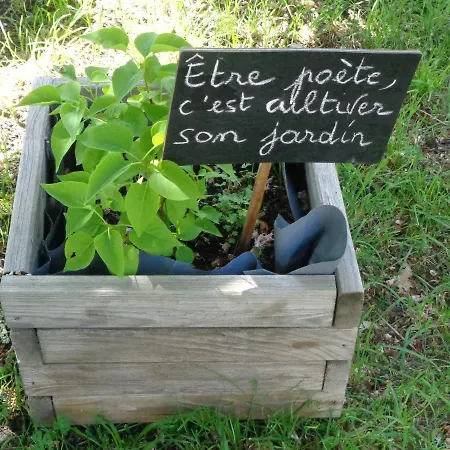 Être poète,
c'est altiver
son jardin